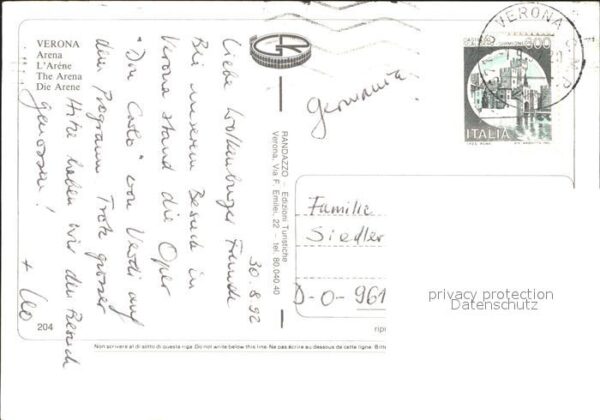 VERONA
Arena
L'Aréne
The Arena
Die Arene
30.8.92
Liebe Wolkenburger Freunde
Bei unserem Besuch in
Verona stand die Oper
"Don Carlo" von Verdi auf
dem Programm. Trotz grosser
Hitze haben wir den Besuch
genossen!
+ Leo
204
GR
RANDAZZO - Edizioni Turistiche
Verona, Via F. Emilei, 22 - tel. 80.040.40
Germania
VERONA
600
ITALIA
Familie
Siedler
D-O-961
privacy protection
Datenschutz
ripr
Non scrivere al di sotto di questa riga. Do not write below this line. Ne pas écrire au dessous de cette ligne. Bitte